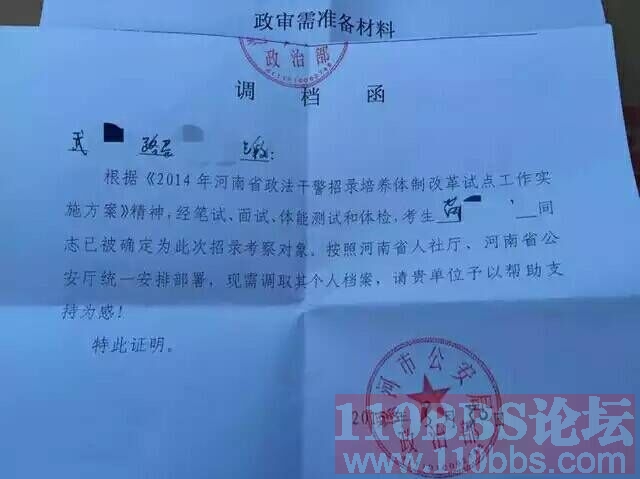 政审需准备材料
政治部
调 档 函
武
根据《2014年河南省政法干警招录培养体制改革试点工作实
施方案》精神，经笔试、面试、体能测试和体检，考生 同
志已被确定为此次招录考察对象。按照河南省人社厅、河南省公
安厅统一安排部署，现需调取其个人档案，请贵单位予以帮助支
持为感！
特此证明。
河市公安局
政治部
110BBS论坛
www.110bbs.com